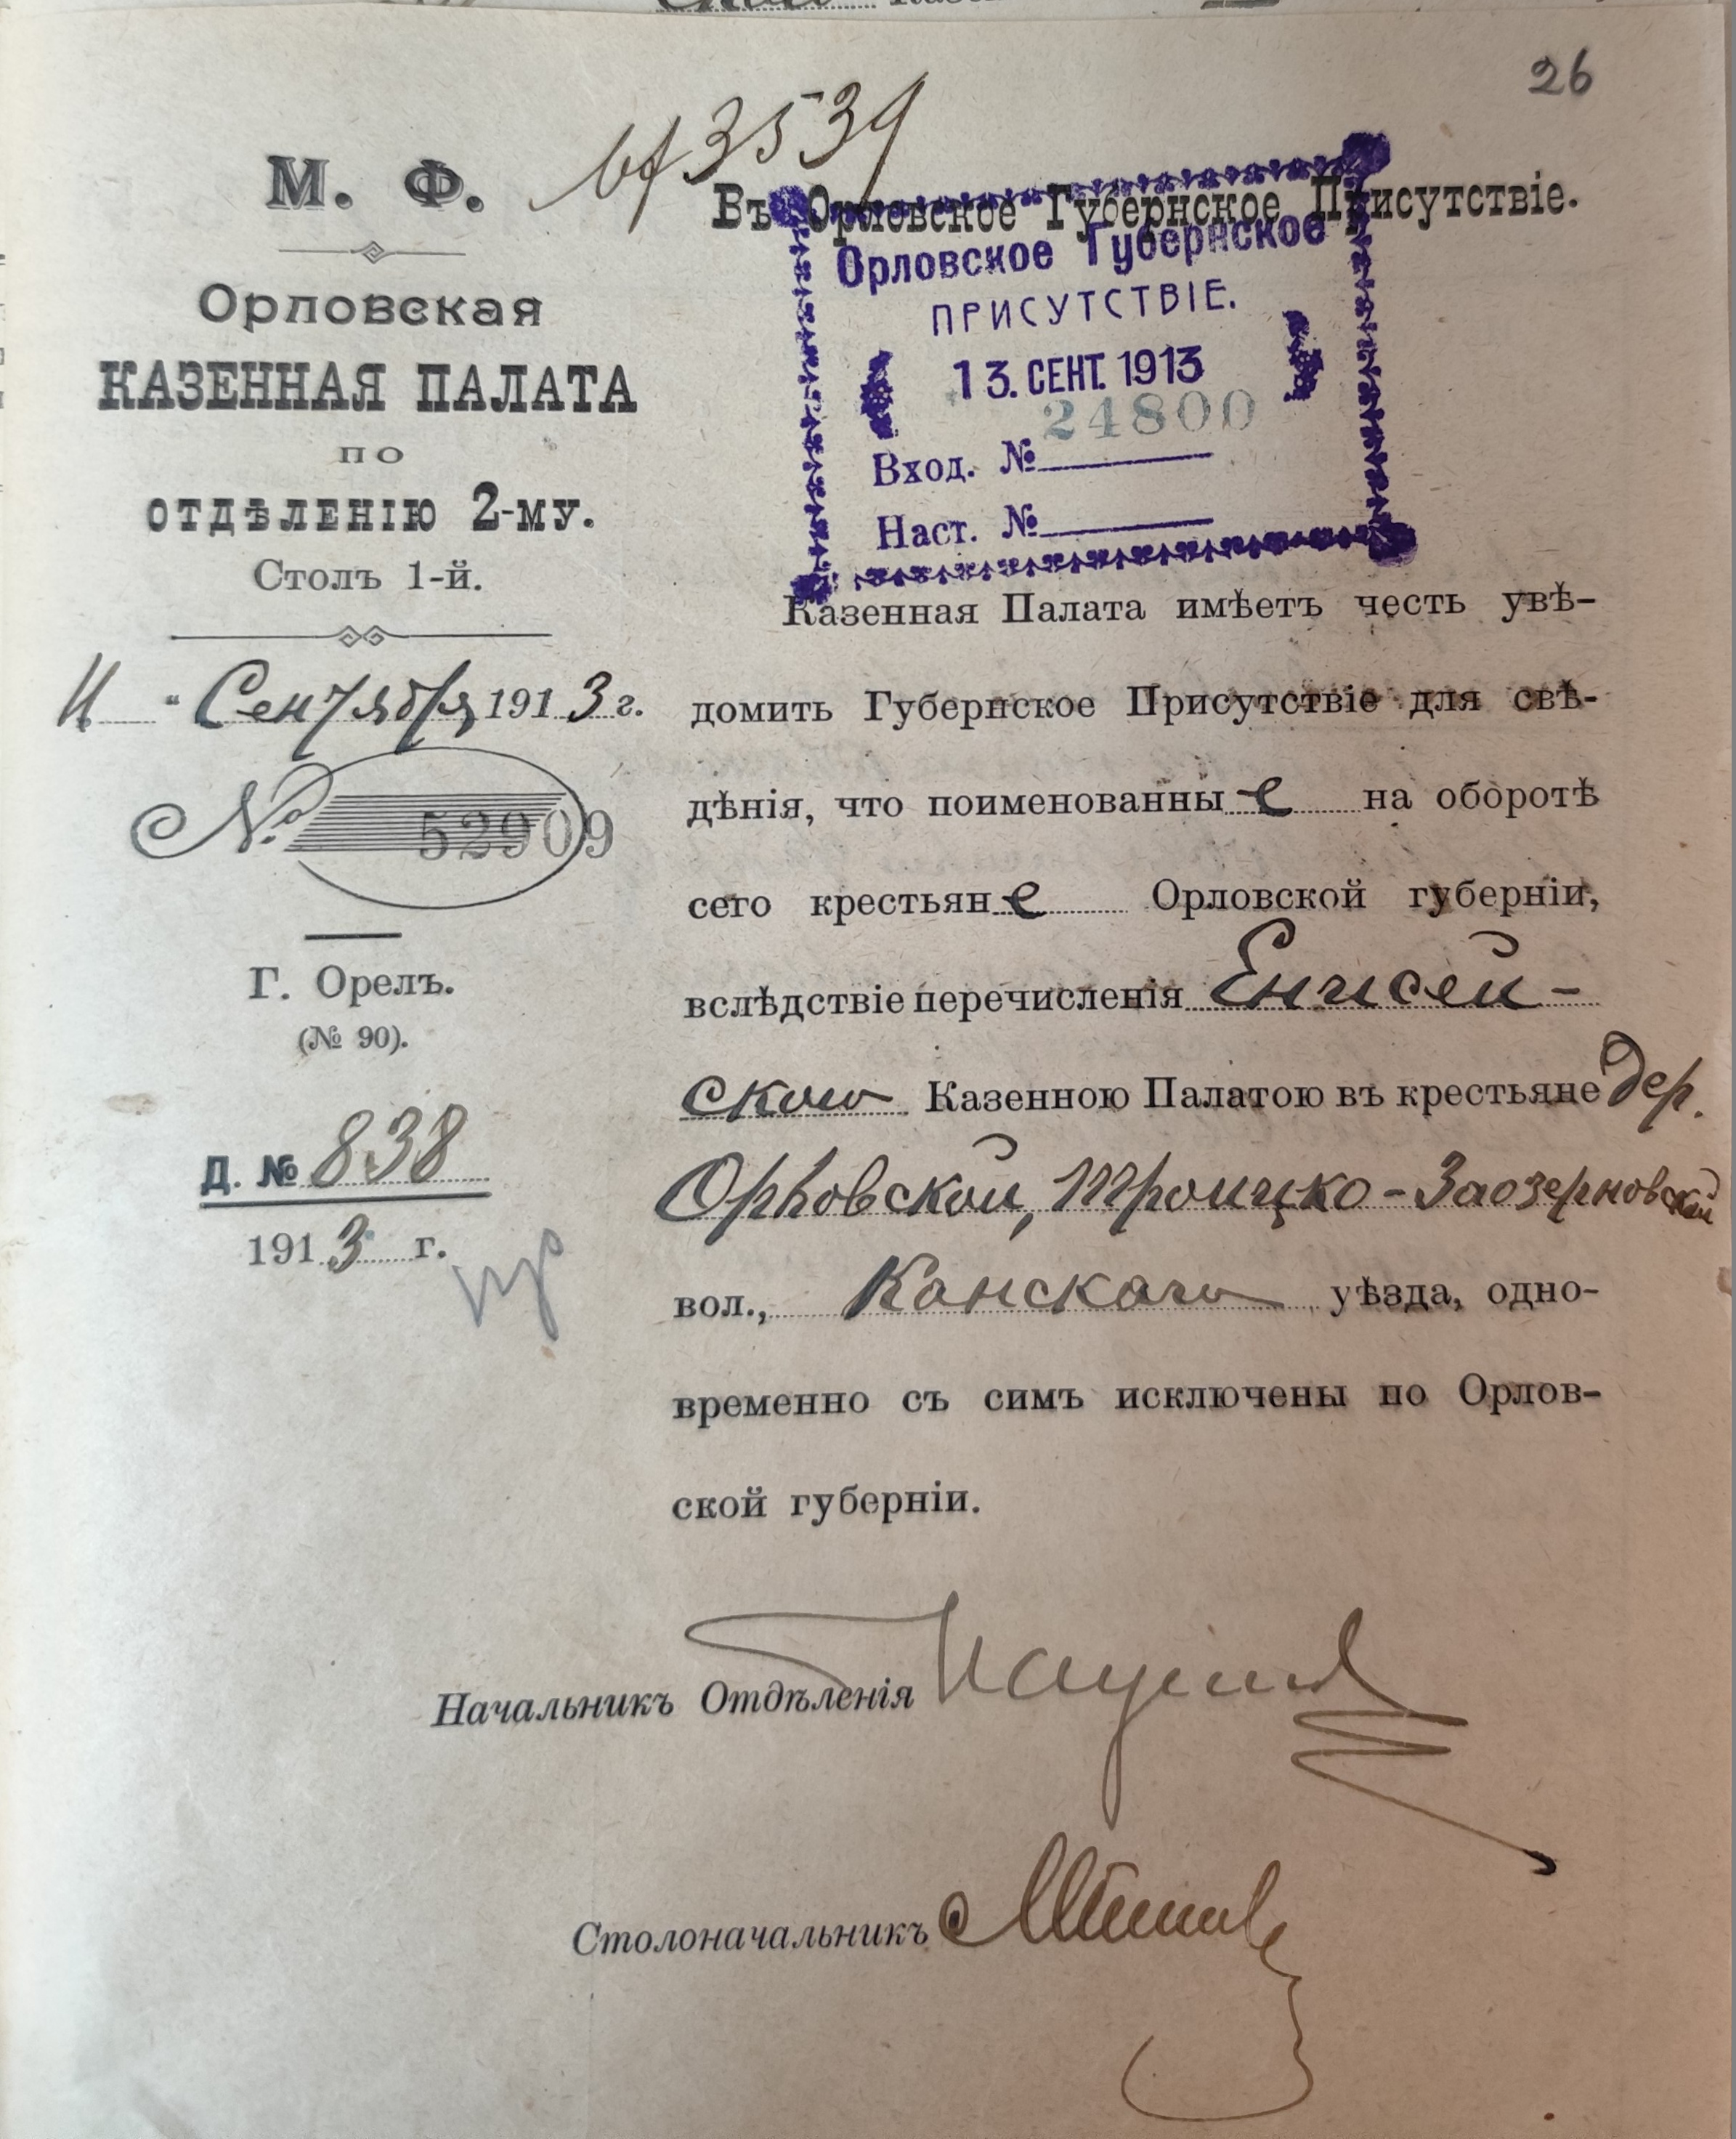 26
3539
М. Ф.
Орловская
КАЗЕННАЯ ПАЛАТА
по
отдѣленію 2-му.
Столъ 1-й.
11 " Сентября 1913 г.
№ 52909
Г. Орелъ.
(№ 90).
Д. № 838
1913 г.
Въ Орловское Губернское Присутствіе.
Орловское Губернское
ПРИСУТСТВІЕ.
13. СЕНТ. 1913
24800
Вход. №
Наст. №
Казенная Палата имѣетъ честь увѣ-
домить Губернское Присутствіе для свѣ-
дѣнія, что поименованные на оборотѣ
сего крестьяне Орловской губерніи,
вслѣдствіе перечисленія Енисей-
скою Казенною Палатою въ крестьяне дер.
Орловской, Троицко-Заозерновской
вол., Канскаго уѣзда, одно-
временно съ симъ исключены по Орлов-
ской губерніи.
Начальникъ Отдѣленія
Столоначальникъ